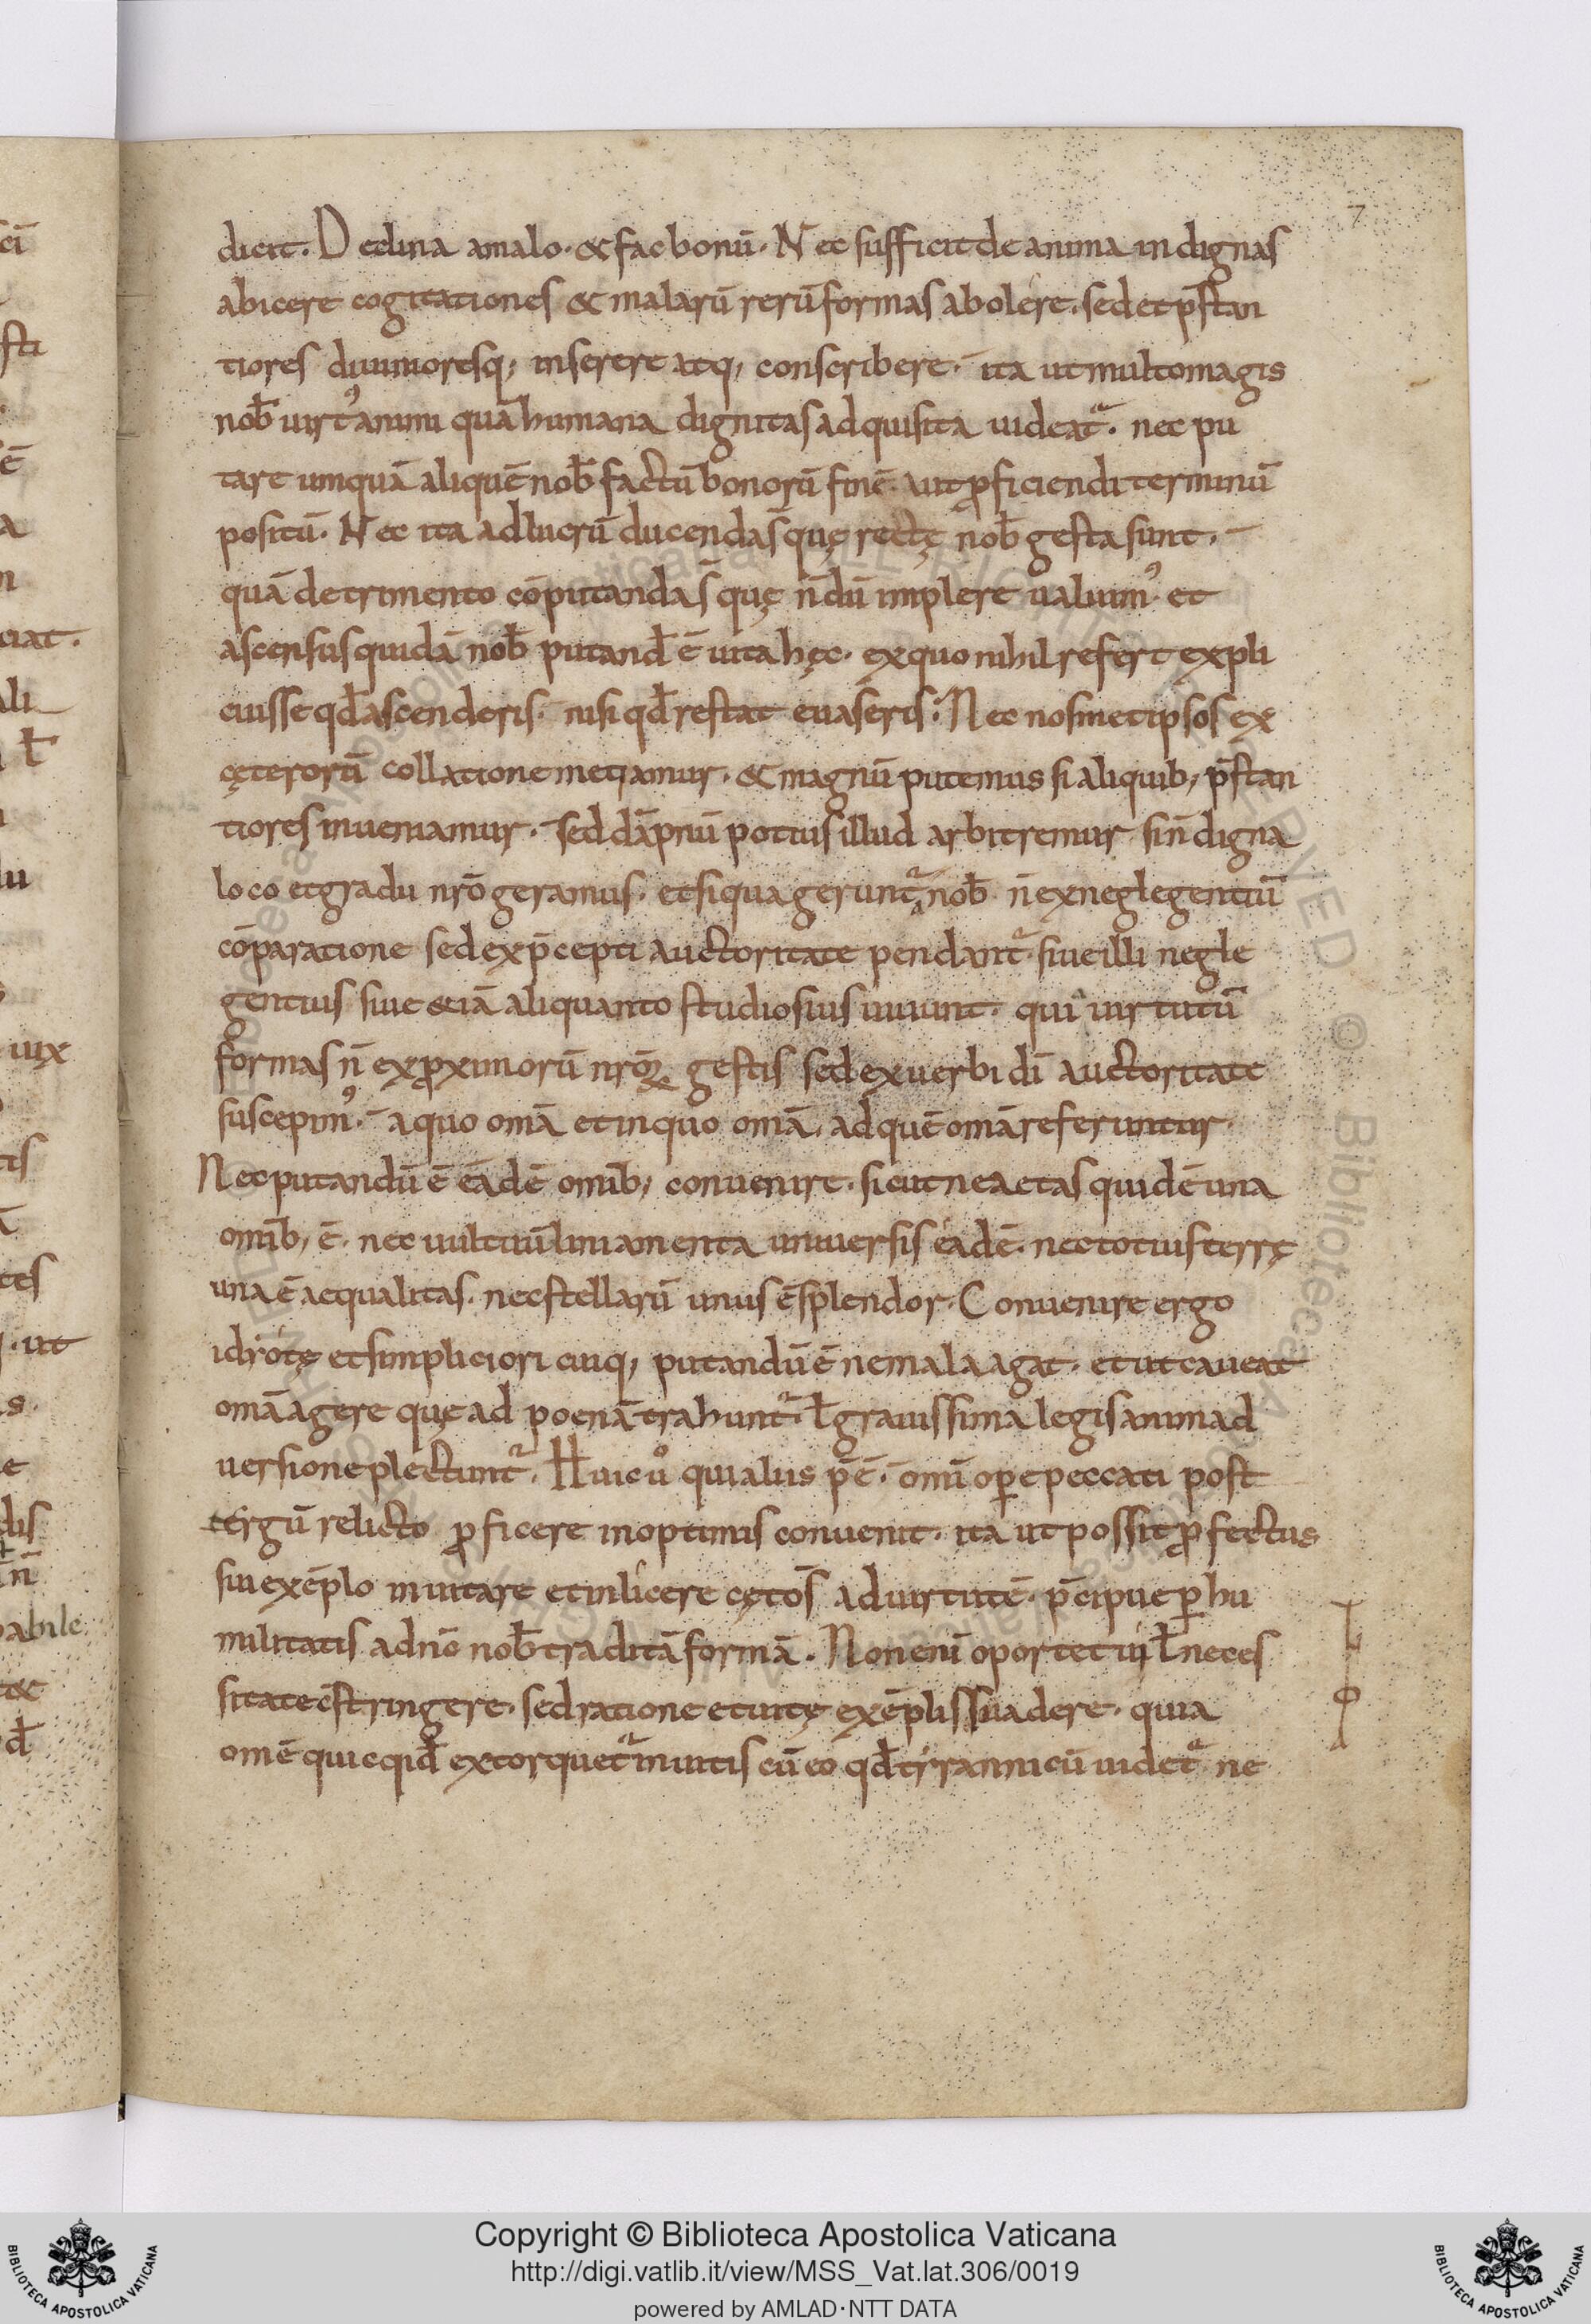 7
dicit. Declina amalo. & fac bonū. Nec sufficit de anima indignas
abicere cogitationes & malarū rerū formas abolere. sed et p̄stan
tiores diuinioresq; inserere atq; conscribere. ita ut multo magis
nob̄ uirt᾿ animi quā humana dignitas adquisita uideat᷑. nec pu
tare umquā aliquē nob̄ factū bonorū finē. aut ꝓficiendi terminū
positū. Nec ita ad lucrū ducenda s̄ quę rectę nob̄ gesta sunt.
quā detrimento cōputanda s̄ quę n̄dū implere ualuim᾿. et
ascensus quidā nob̄ putand̄ ē uita hęc. ex quo nihil refert expli
cuisse qd̄ ascenderis. nisi qd̄ restat euaseris. Nec nosmetipsos ex
cęterorū collatione metiamur. & magnū putemus si aliquib; p̄stan
tiores inueniamur. sed dāpnū potius illud arbitremur si n̄ digna
loco et gradu nr̄o geramus. et si qua gerunt᷑ a nob̄ n̄ ex neglegentiū
cōparatione sed ex p̄cepti auctoritate pendant᷑. siue illi negle
gentius siue &iā aliquanto studiosius uiuunt. qui uirtutū
formas n̄ ex ꝓximorū nr̄oꝝ gestis sed ex uerbi dī auctoritate
suscepim᾿. a quo om̄a et in quo om̄a. ad quē om̄a referuntur.
Nec putandū ē eadē omib; conuenire. sicut ne aetas quidē una
omib; ē. nec uultuū liniamenta uniuersis eadē. nec totius terrę
una ē aequalitas. nec stellarū unus ē splendor. Conuenire ergo
idiotę et simpliciori cuiq; putandū ē ne mala agat. et ut caueat
om̄a agere quę ad poenā trahunt᷑. ł grauissima legis animad
uersione plectunt᷑. Huic uͦ qui alius p̄ē. omī opere peccati post
tergū relicto ꝓficere in optimis conuenit. ita ut possit ꝓfectus
sui exēplo inuitare et inlicere cęt̄os ad uirtutē. p̄cipue ꝑ hu
militatis a dn̄o nob̄ traditā formā. Non enī oportet ui ł neces
sitate c̄stringere. sed ratione et uitę exēplis suadere. quia
om̄e quicqid̄ extorquet᷑ inuitis cū eo qd̄ tirannicū uidet᷑ ne
Copyright © Biblioteca Apostolica Vaticana
http://digi.vatlib.it/view/MSS_Vat.lat.306/0019
powered by AMLAD·NTT DATA
BIBLIOTECA APOSTOLICA VATICANA
BIBLIOTECA APOSTOLICA VATICANA